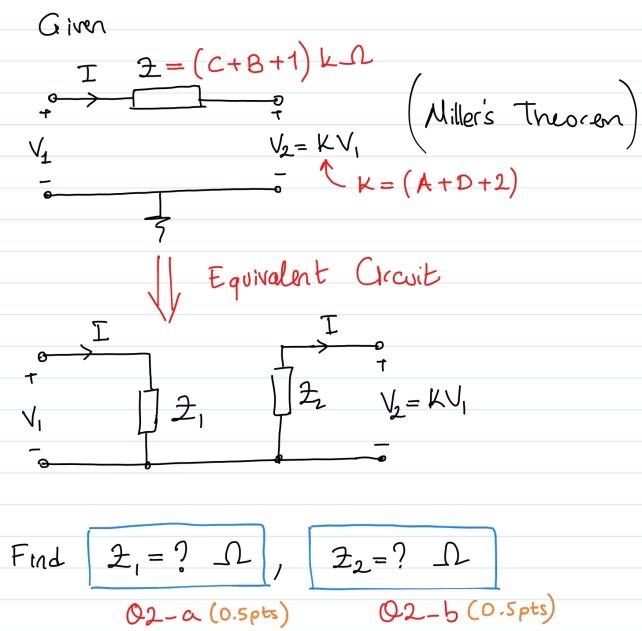 Given
I Z = (C+B+1) kΩ
+ +
V₁ V₂ = KV₁
(Miller's Theorem)
- -
K = (A+D+2)
Equivalent Circuit
I I
+ +
V₁ Z₁ Z₂ V₂ = KV₁
- -
Find Z₁ = ? Ω , Z₂ = ? Ω
Q2-a (0.5pts) Q2-b (0.5pts)